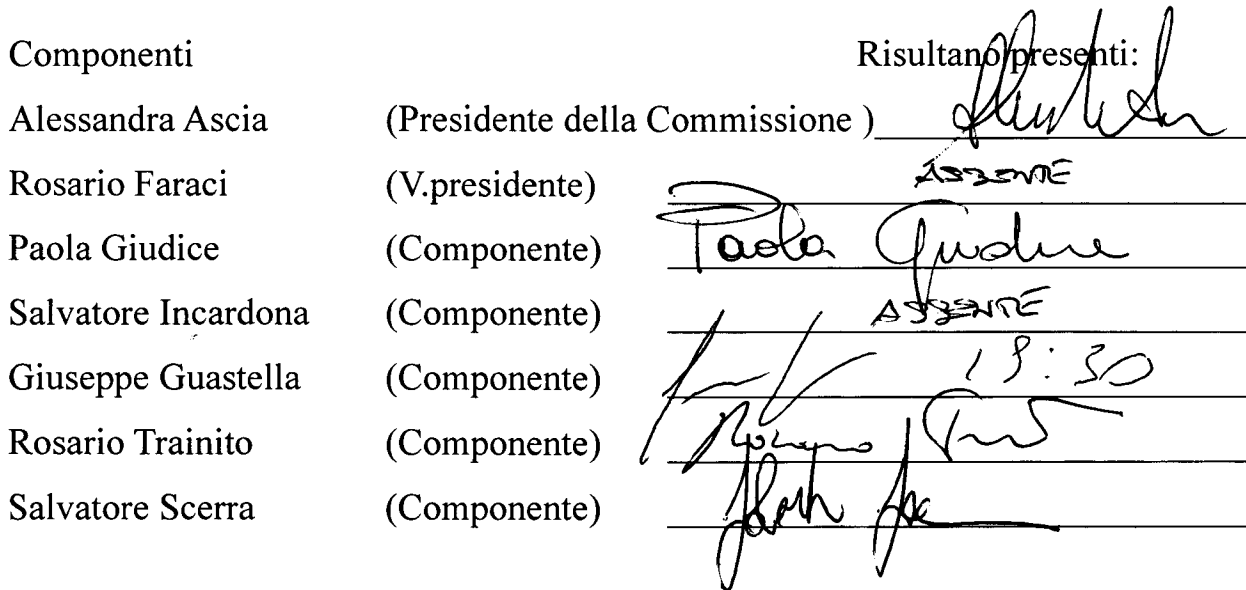 Componenti Risultano presenti:
Alessandra Ascia (Presidente della Commissione )
Rosario Faraci (V.presidente) ASSENTE
Paola Giudice (Componente) Paola Giudice
Salvatore Incardona (Componente) ASSENTE
Giuseppe Guastella (Componente) :30
Rosario Trainito (Componente)
Salvatore Scerra (Componente)